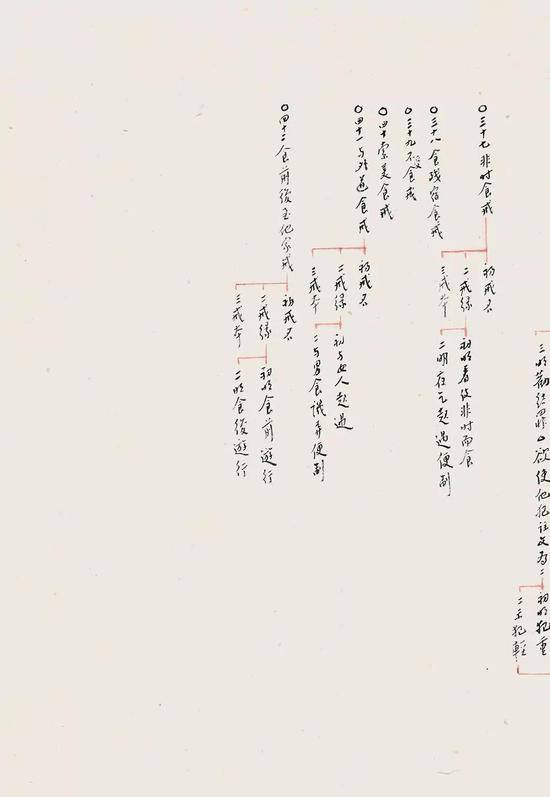 三明勸結罪〇欲使他犯註文為二
初明犯重
二示犯輕
〇三十七非時食戒
初戒名
二戒緣
三戒本
初明看伎非時而食
二明在乞起過便制
〇三十八食殘宿食戒
〇三十九不受食戒
〇四十索美食戒
〇四十一与外道食戒
初戒名
二戒緣
三戒本
初与女人起過
二与男食譏弄便制
〇四十二食前後至他家戒
初戒名
二戒緣
三戒本
初明食前遊行
二明食後遊行